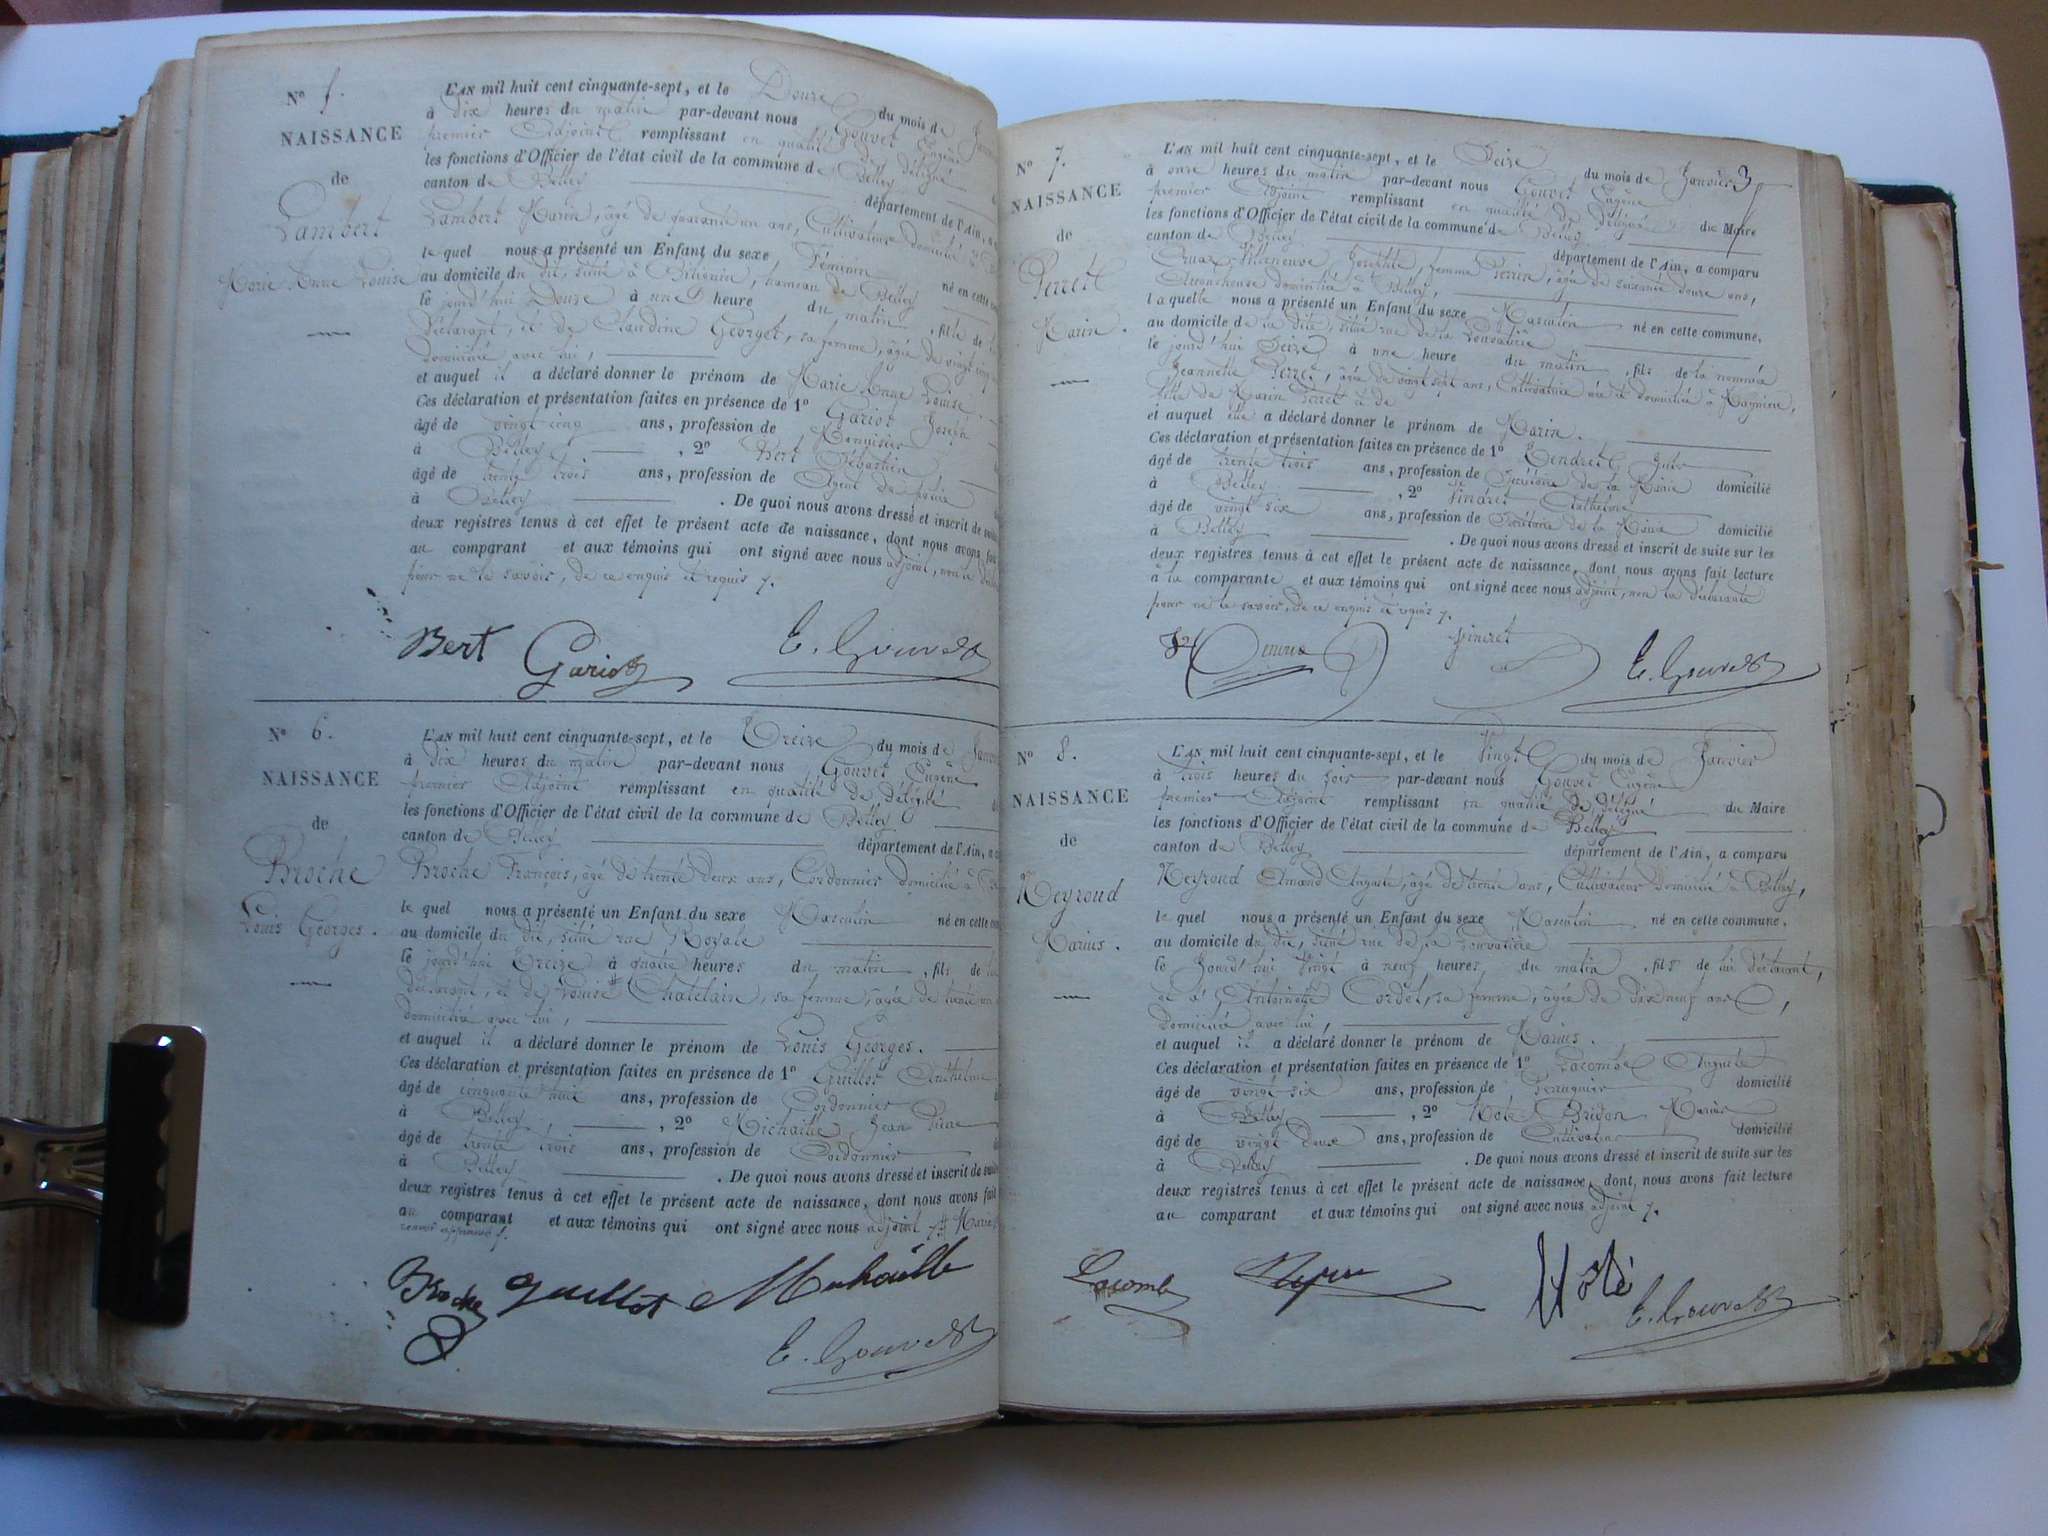 N° 5.
NAISSANCE
de
Lambert
Marie Anne Louise
L'AN mil huit cent cinquante-sept, et le Douze du mois de
à dix heures du matin par-devant nous Gouvet Eugène
premier Adjoint remplissant en qualité de délégué
les fonctions d'Officier de l'état civil de la commune de Belley
canton de Belley département de l'Ain, a
Lambert Marin, âgé de quarante un ans, Cultivateur domicilié à
le quel nous a présenté un Enfant du sexe Féminin
au domicile du dit, situé à Billignin, hameau de Belley né en cette
le jourd'hui Douze à une heure du matin, fille de
déclarant, et de Claudine Georget, sa femme, âgée de vingt cinq
domiciliée avec lui,
et auquel il a déclaré donner le prénom de Marie Anne Louise.
Ces déclaration et présentation faites en présence de 1° Gariot Joseph
âgé de vingt cinq ans, profession de Menuisier
à Belley, 2° Bert Sébastien
âgé de trente trois ans, profession de Agent de police
à Belley. De quoi nous avons dressé et inscrit de suite
deux registres tenus à cet effet le présent acte de naissance, dont nous avons fait
au comparant et aux témoins qui ont signé avec nous adjoint, non le
pour ne le savoir, de ce enquis et requis
Bert Gariot E. Gouvet
N° 6.
NAISSANCE
de
Broche
Louis Georges.
L'AN mil huit cent cinquante-sept, et le Treize du mois de
à dix heures du matin par-devant nous Gouvet Eugène
premier Adjoint remplissant en qualité de délégué
les fonctions d'Officier de l'état civil de la commune de Belley
canton de Belley département de l'Ain, a
Broche François, âgé de trente deux ans, Cordonnier domicilié à
le quel nous a présenté un Enfant du sexe Masculin né en cette
au domicile du dit, situé rue Royale
le jourd'hui Treize à quatre heures du matin, fils de
déclarant, et de Louise Chatelain, sa femme, âgée de trente
domiciliée avec lui,
et auquel il a déclaré donner le prénom de Louis Georges.
Ces déclaration et présentation faites en présence de 1° Guillot Anthelme
âgé de cinquante huit ans, profession de Cordonnier
à Belley, 2° Michaille Jean Pierre
âgé de trente trois ans, profession de Cordonnier
à Belley. De quoi nous avons dressé et inscrit de suite
deux registres tenus à cet effet le présent acte de naissance, dont nous avons fait
au comparant et aux témoins qui ont signé avec nous adjoint
renvoi approuvé
Broche Guillot Michaille
E. Gouvet
N° 7.
NAISSANCE
de
Perret
Marin.
3
L'AN mil huit cent cinquante-sept, et le Seize du mois de Janvier
à onze heures du matin par-devant nous Gouvet Eugène
premier Adjoint remplissant en qualité de délégué du Maire
les fonctions d'Officier de l'état civil de la commune de Belley
canton de Belley département de l'Ain, a comparu
femme Perrin, âgée de soixante douze ans,
Accoucheuse domiciliée à Belley,
laquelle nous a présenté un Enfant du sexe Masculin né en cette commune,
au domicile de la dite, situé rue de la Louvatière
le jourd'hui Seize à une heure du matin, fils de la nommée
Jeannette Perret, âgée de vingt sept ans, Cultivatrice née et domiciliée à
fille de Marin Perret
et auquel elle a déclaré donner le prénom de Marin.
Ces déclaration et présentation faites en présence de 1° Jules
âgé de trente trois ans, profession de Secrétaire de la Mairie domicilié
à Belley, 2° Pinoret Anthelme
âgé de vingt six ans, profession de Secrétaire de la Mairie domicilié
à Belley. De quoi nous avons dressé et inscrit de suite sur les
deux registres tenus à cet effet le présent acte de naissance, dont nous avons fait lecture
à la comparante et aux témoins qui ont signé avec nous adjoint, non la déclarante
pour ne le savoir, de ce enquis et requis
E. Gouvet
N° 8.
NAISSANCE
de
Neyroud
Marius.
L'AN mil huit cent cinquante-sept, et le Vingt du mois de Janvier
à trois heures du soir par-devant nous Gouvet Eugène
premier Adjoint remplissant en qualité de délégué du Maire
les fonctions d'Officier de l'état civil de la commune de Belley
canton de Belley département de l'Ain, a comparu
Neyroud Amand Auguste, âgé de trente ans, Cultivateur domicilié à Belley,
le quel nous a présenté un Enfant du sexe Masculin né en cette commune,
au domicile du dit, situé rue de la Louvatière
le Jourd'hui Vingt à neuf heures du matin, fils de lui déclarant,
et d'Antoinette Cordet, sa femme, âgée de dix neuf ans,
domiciliée avec lui,
et auquel il a déclaré donner le prénom de Marius.
Ces déclaration et présentation faites en présence de 1° Lacombe Auguste
âgé de vingt six ans, profession de Perruquier domicilié
à Belley, 2° Hoté Brigon Marin
âgé de vingt deux ans, profession de Cultivateur domicilié
à Belley. De quoi nous avons dressé et inscrit de suite sur les
deux registres tenus à cet effet le présent acte de naissance, dont nous avons fait lecture
au comparant et aux témoins qui ont signé avec nous adjoint
Lacombe Hoté E. Gouvet